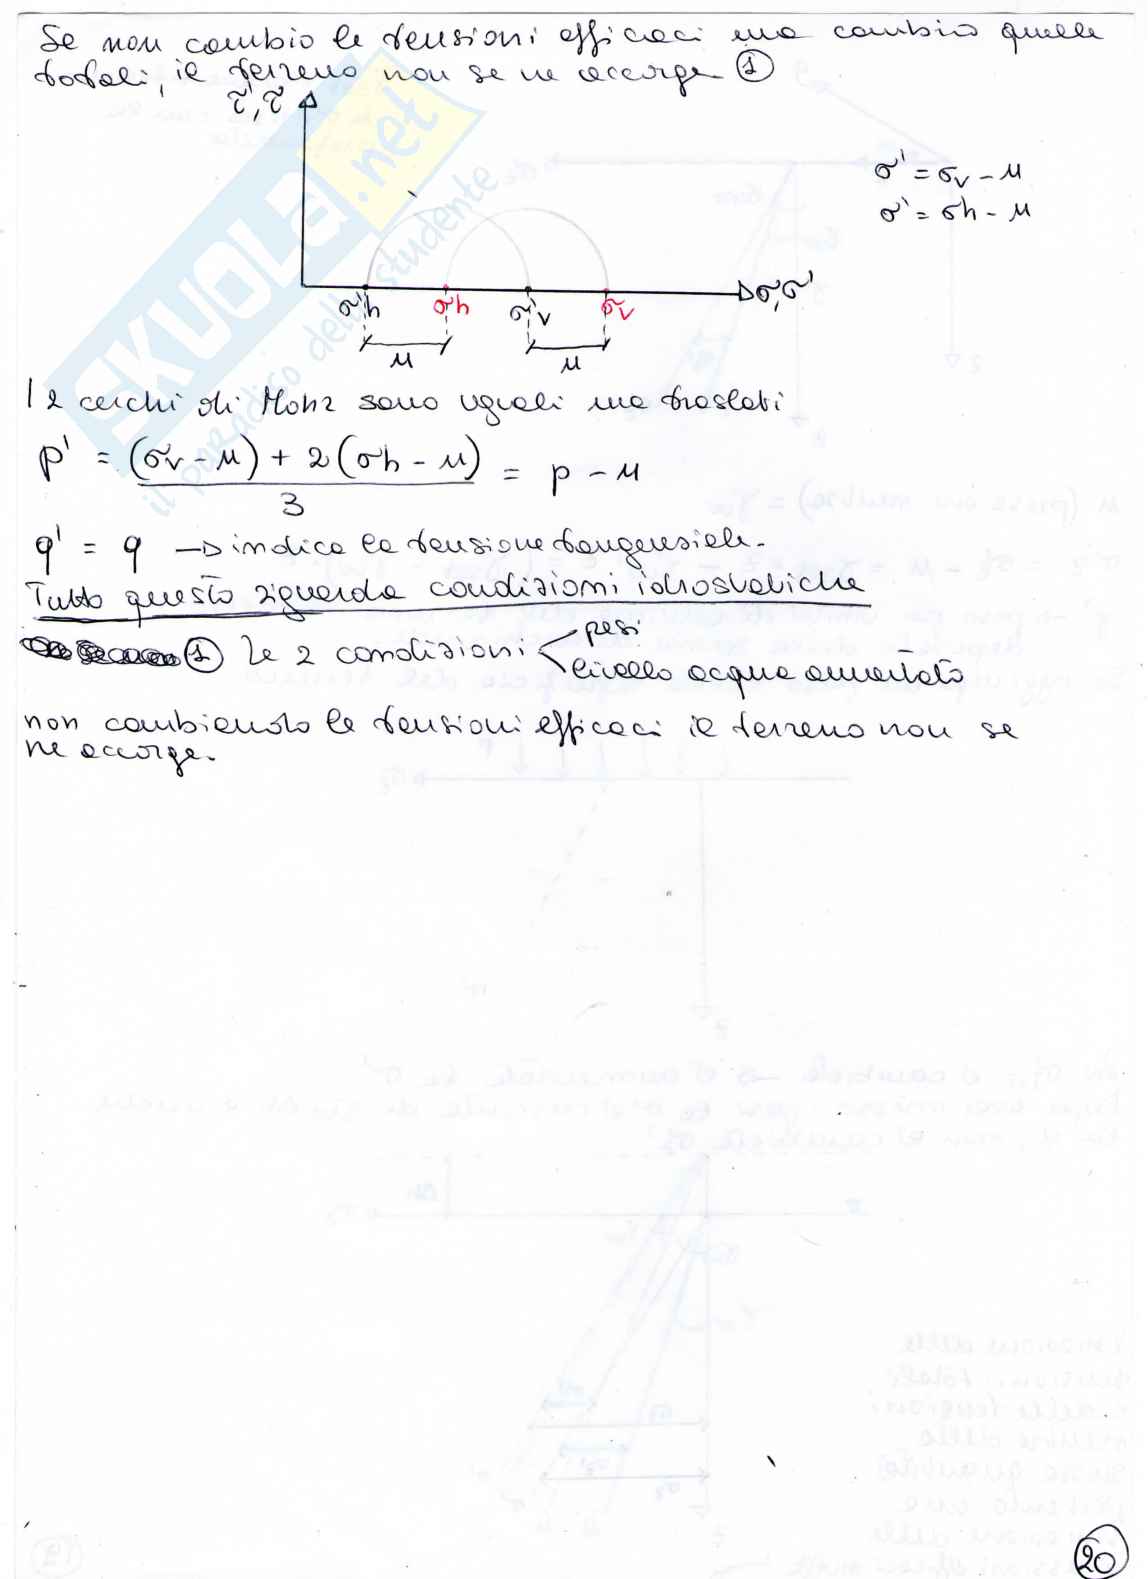 Se non cambio le tensioni efficaci ma cambio quelle
totali, il terreno non se ne accorge ①
τ', τ
σ' = σv - u
σ' = σh - u
σ, σ'
σ'h σh σ'v σv
u u
I 2 cerchi di Mohr sono uguali ma traslati
p' = (σv - u) + 2(σh - u) / 3 = p - u
q' = q → indica la tensione tangenziale.
Tutto questo riguarda condizioni idrostatiche
① le 2 condizioni
pesi
livello acqua aumentato
non cambiando le tensioni efficaci il terreno non se
ne accorge.
20
SKUOLA.net
il paradiso dello studente